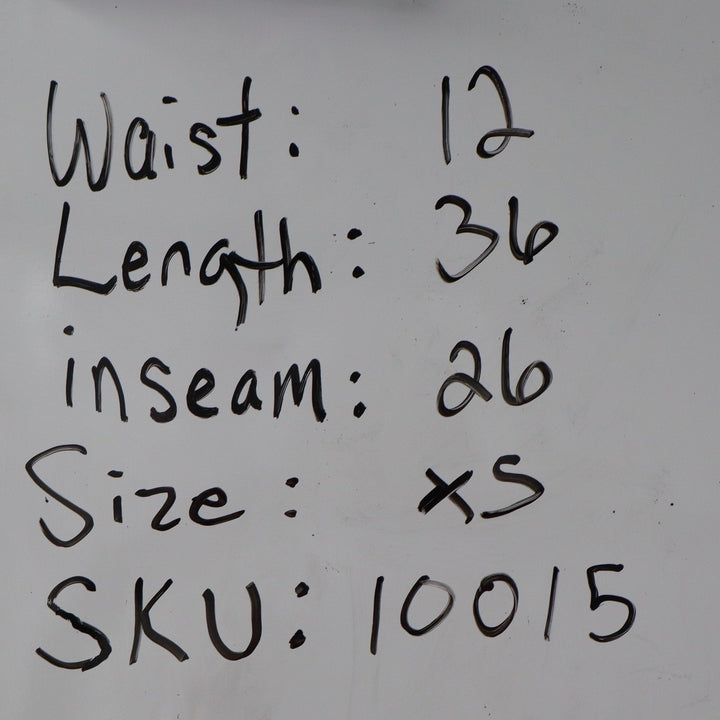 Waist: 12
Length: 36
inseam: 26
Size: XS
SKU: 10015